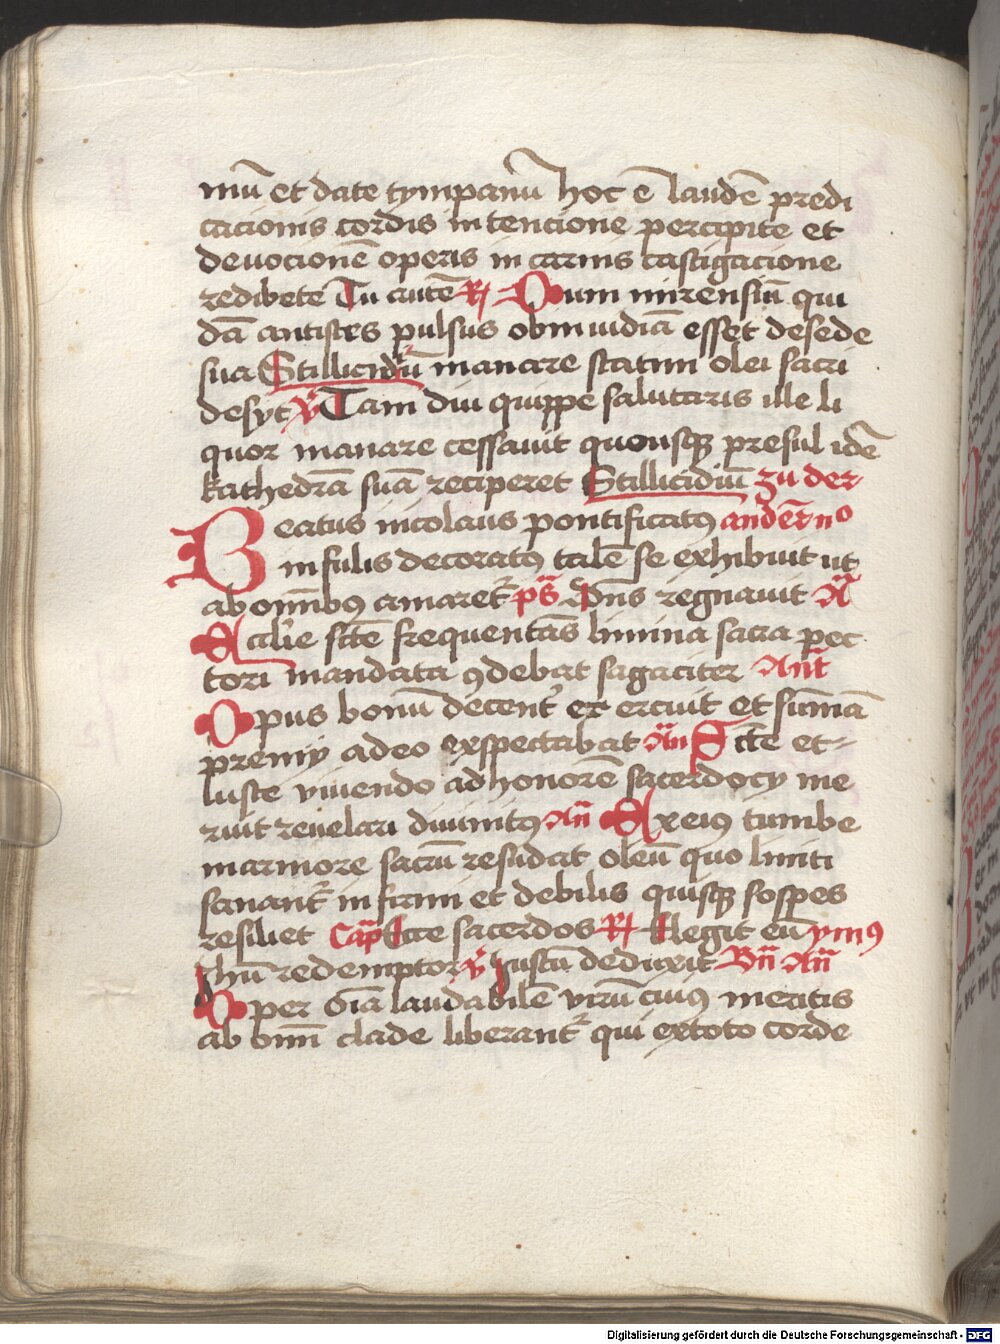 mū et date tympanū hoc ē laudē predi
cacionis cordis in tencione percipite et
deuocionē operis in carnis castigacione
redibete Tu autē R Dum mirensiū qui
dā antistes pulsus ob in uidiā esset de sede
sua Stillicidiū manare statim olei sacri
desyt V Tam diu quippe salutaris ille li
quor manare cessauit quousqꝫ presul idē
kathedrā suā reciperet Stillicidiū zu der
Beatus nicolaus pontificatꝯ andern no
in fulis decoratꝯ talē se exhibuit ut
ab omībꝯ amaret ps Dns regnauit A
scte frequentās limina sacra pec
tori mandata ꝯdebat sagaciter Ant
Opus bonū decent er ercuit et sūmā
premiy adeo exspectabat An Scte et
Iuste viuendo ad honorē sacerdocy me
ruit reuelari diuinitꝯ An Ex eius tumbe
marmore sacrū resudat oleū quo liniti
sanant in firmi et debilis quisqꝫ sospes
resiliet Cap Ecce sacerdos R Elegit eū ymꝯ
Ihū redemptor V Iustū deduxit Bn An
O per oīa laudabilē virū cuiꝯ meritis
ab omī clade liberant qui ex toto corde
Digitalisierung gefördert durch die Deutsche Forschungsgemeinschaft - DFG